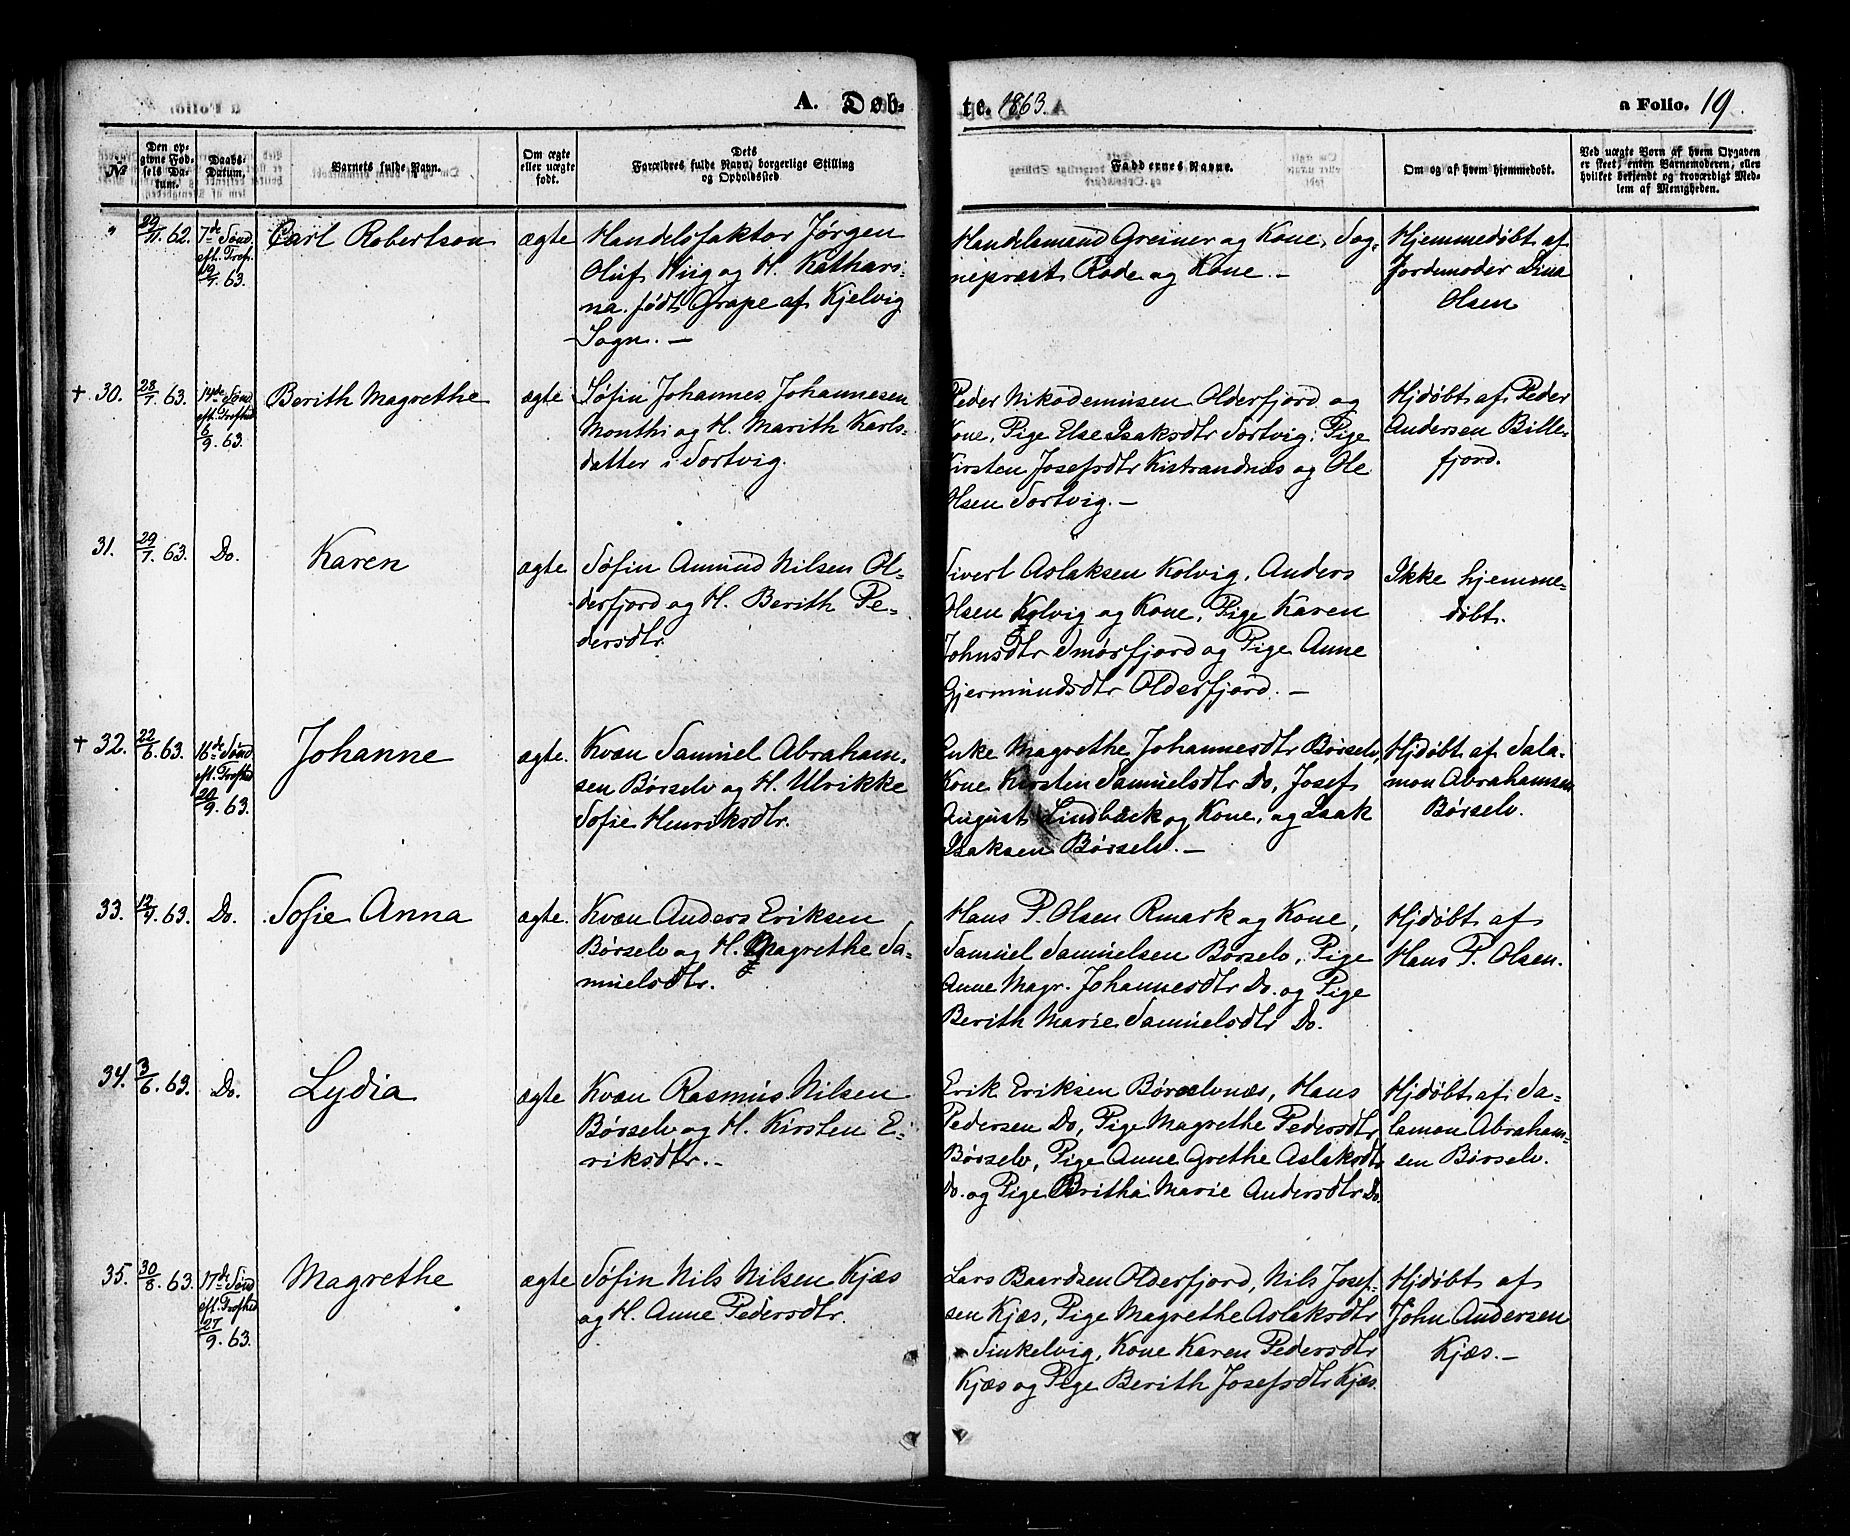 A. Døb-
te. 1863.
a Folio. 19.
No
Den op-
givne Fød-
sels Da-
tum.
Daabs-
Datum.
Barnets fulde Navn.
Om ægte
eller uægte
født.
Dets
Forældres fulde Navn, borgerlige Stilling
og Opholdssted
Faddernes Navne.
Om og af hvem hjemmedøbt.
Ved uægte Børn af hvem Opgaven
er skeet, enten Barnemoderen, eller
hvilket bekjendt og troværdigt Med-
lem af Menigheden.
"
29/11 62.
7de Sønd.
eft. Tref.
19/7 63.
Carl Robertson
ægte
Handelsfaktor Jørgen
Oluf Wiig og H. Kathari-
na født Grape af Kjelvig
Sogn. —
Handelsmand Greiner og Kone, Sog-
nepræst Rode og Kone. —
Hjemmedøbt af
Jordemoder Lina
Olsen
+ 30.
28/7 63.
14de Sønd
eft. Trefhed
6/9 63.
Berith Magrethe
ægte
Søfin Johannes Johannesen
Monthi og H. Marith Karls-
datter i Sortvig.
Peder Nikodemusen Olderfjord og
Kone, Pige Else Isaksdtr Sortvig, Pige
Kirsten Josefsdtr Kistrandnæs og Ole
Olsen Sortvig. —
Hjdøbt af Peder
Andersen Bille-
fjord.
31.
29/7 63.
Do.
Karen
ægte
Søfin Amund Nilsen Ol-
derfjord og H. Berith Pe-
dersdtr.
Sivert Aslaksen Kolvig, Anders
Olsen Kolvig og Kone, Pige Karen
Johnsdtr Smørfjord og Pige Anne
Gjermundsdtr Olderfjord. —
Ikke hjemme-
døbt.
+ 32.
22/6 63.
16de Sønd
eft. Trefhed
20/9 63.
Johanne
ægte.
Kvæn Samuel Abraham-
sen Børselv og H. Ulrikke
Sofie Henriksdtr.
Enke Magrethe Johannesdtr Børselv,
Kone Kirsten Samuelsdtr Do, Josef
August Lindbæck og Kone, og Isak
Isaksen Børselv. —
Hjdøbt af Sala-
mon Abrahamsen
Børselv.
33.
12/7 63.
Do.
Sofie Anna
ægte.
Kvæn Anders Eriksen
Børselv og H. Magrethe Sa-
muelsdtr.
Hans P. Olsen Rmark og Kone,
Samuel Samuelsen Børselv, Pige
Anne Magr. Johannesdtr Do. og Pige
Berith Marie Samuelsdtr Do.
Hjdøbt af
Hans P. Olsen.
34.
3/6 63.
Do.
Lydia
ægte
Kvæn Rasmus Nilsen
Børselv og H. Kirsten E-
riksdtr. -
Erik Eriksen Børselvnæs, Hans
Pedersen Do, Pige Magrethe Pedersdtr
Børselv, Pige Anne Grethe Aslaksdtr
Do. og Pige Britha Marie Andersdtr Do.
Hjdøbt af Sa-
lamon Abraham-
sen Børselv.
35.
30/8 63.
17de Sønd
eft. Trefhed
27/9 63.
Magrethe
ægte
Søfin Nils Nilsen Kjæs
og H. Anne Pedersdtr.
Lars Baardsen Olderfjord, Nils Josef-
sen Kjæs, Pige Magrethe Aslaksdtr
Sinkelvig, Kone Karen Pedersdtr
Kjæs og Pige Berith Josefsdtr Kjæs.
Hjdøbt af
John Andersen
Kjæs. —